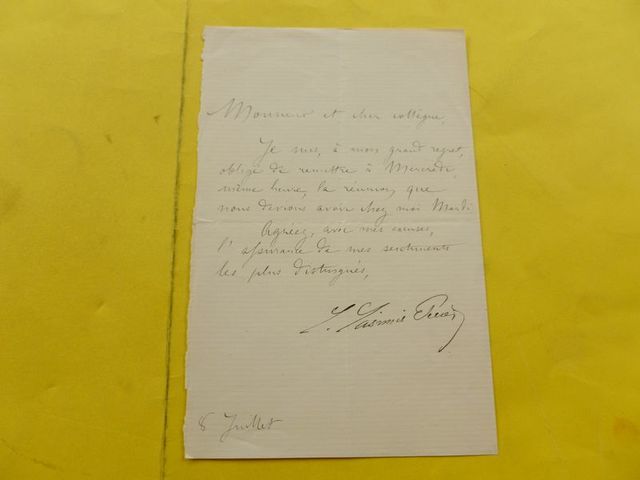 Monsieur et cher collègue,
Je suis, à mon grand regret,
obligé de remettre à Mercredi,
même heure, la réunion que
nous devions avoir chez moi Mardi
Agréez, avec mes excuses,
l'assurance de mes sentiments
les plus distingués,
J. Casimir Perier
8 Juillet